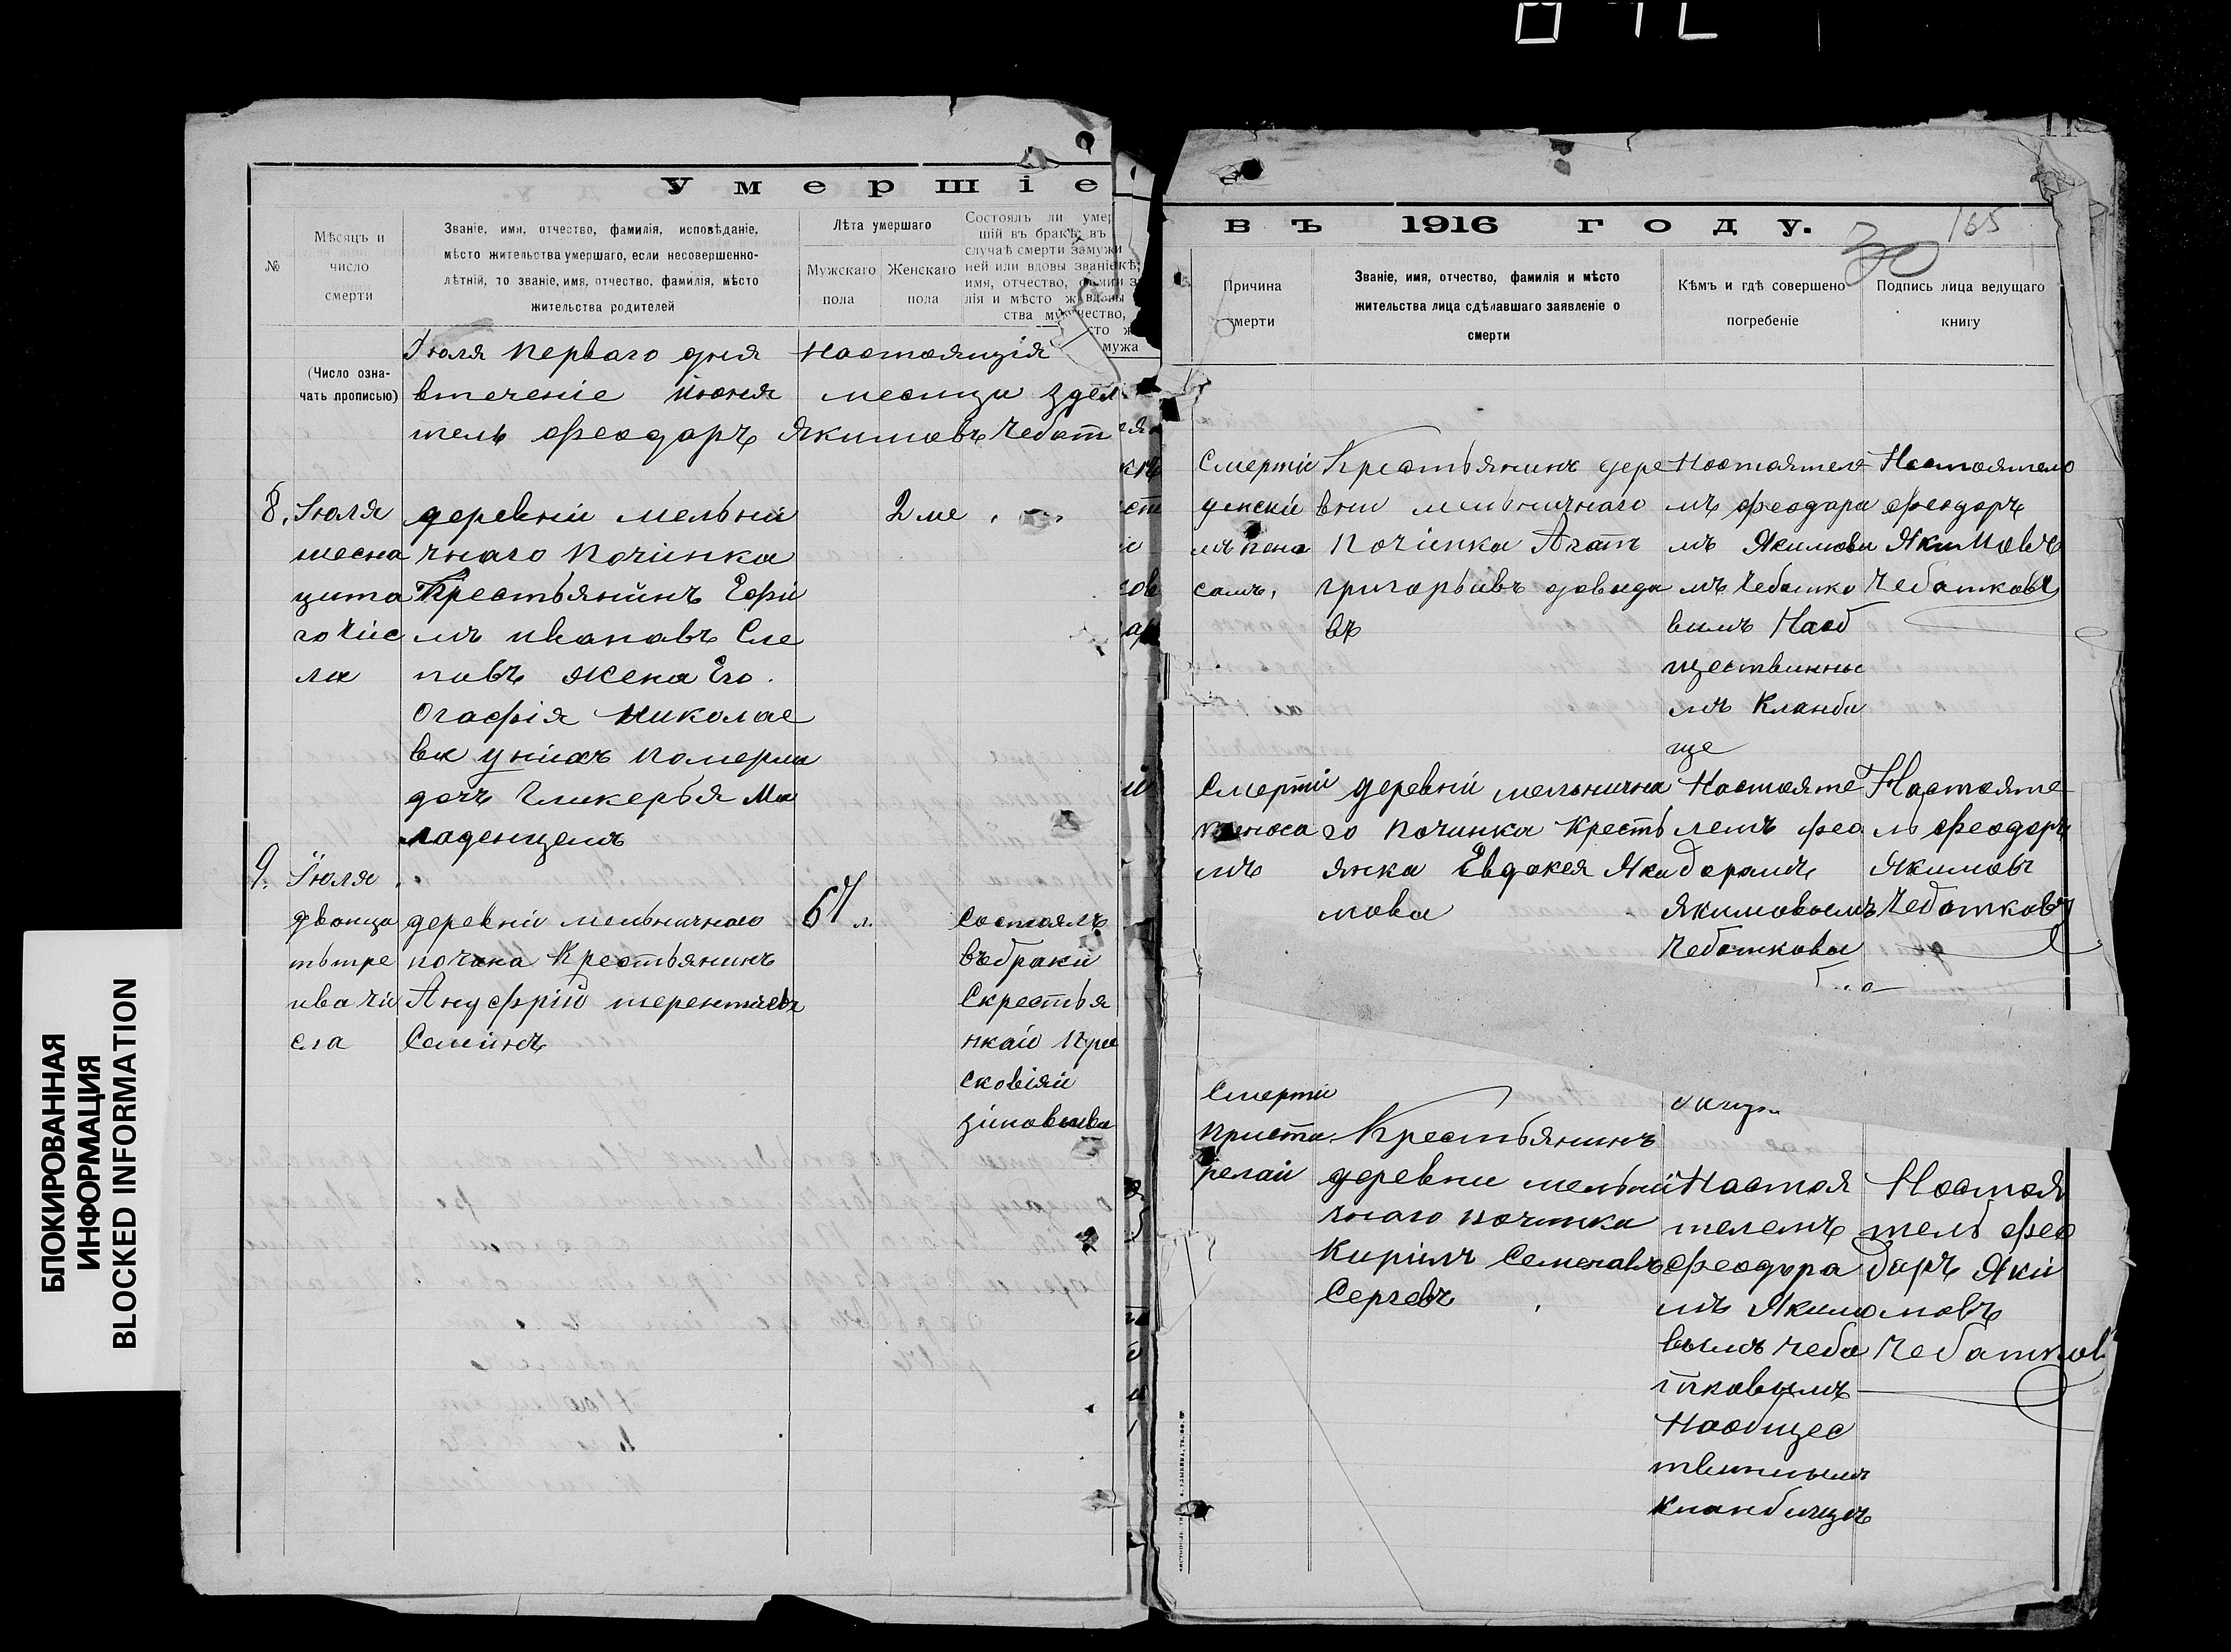 БЛОКИРОВАННАЯ
ИНФОРМАЦИЯ
BLOCKED INFORMATION
Умершіе
№
Мѣсяцъ и
число
смерти
(Число озна-
чать прописью)
Званіе, имя, отчество, фамилія, исповѣданіе,
мѣсто жительства умершаго, если несовершенно-
лѣтній, то званіе, имя, отчество, фамилія, мѣсто
жительства родителей
Лѣта умершаго
Мужскаго
пола
Женскаго
пола
Состоялъ ли умер
шій въ бракѣ; въ
случаѣ смерти замужи
ней или вдовы званіе
имя, отчество,
лія и мѣсто
ства
мужа
Іюля перваго дня настоящія
втеченіе июня месицы здел
тель феодоръ Якимовъ Чебот
8. Іюля
шесна
цита
го чис
ла
деревніи мельни
чнаго починка
Крестьянинъ Ефи
мъ ивановъ Сле
повъ жена Его
Огафія николае
вк унихъ померла
дочъ Гликерья Мл
ладенцемъ
2 ме
9. Іюля
дванца
тьтре
ива чи
сла
деревніи мельничнаго
почика Крестьянинъ
Ануфрій терентиевъ
Семинъ
67 л.
Состоялъ
въбраки
Скрестья
нкаи пра
сковіяи
зиновьива
въ 1916 году.
30
165
Причина
смерти
Званіе, имя, отчество, фамилія и мѣсто
жительства лица сдѣлавшаго заявленіе о
смерти
Кѣмъ и гдѣ совершено
погребеніе
Подпись лица ведущаго
книгу
Смертіи
дитски
мъ поно
сомъ,
Крестьянинъ дере
вни мельничнаго
починка Агат
григорьивъ довида
въ
Настоятеле
мъ феодора
мъ Якимовы
мъ Чеботко
вымъ Нооб
ществинны
мъ Кланби
ще
Настоятель
феодоръ
Якимовъ
Чеботковъ
Смертіи
поноса
мъ
деревніи мельнична
го починка Кресть
янка Евдокея Яки
мова
Настояте
лемъ фео
доромъ
Якимовымъ
Чеботковы
Настояте
ль феодоръ
Якимовъ
Чеботковъ
Смерти
приста
релаи
Крестьянинъ
деревни мельни
чнаго починка
Кирилъ Семеновъ
Сергевъ
Настоя
телемъ
феодора
мъ Якимо
вымъ чебо
тковымъ
Наобщес
твинымъ
Кланбищъ
Настоя
тель фео
доръ Яки
мовъ
Чеботков